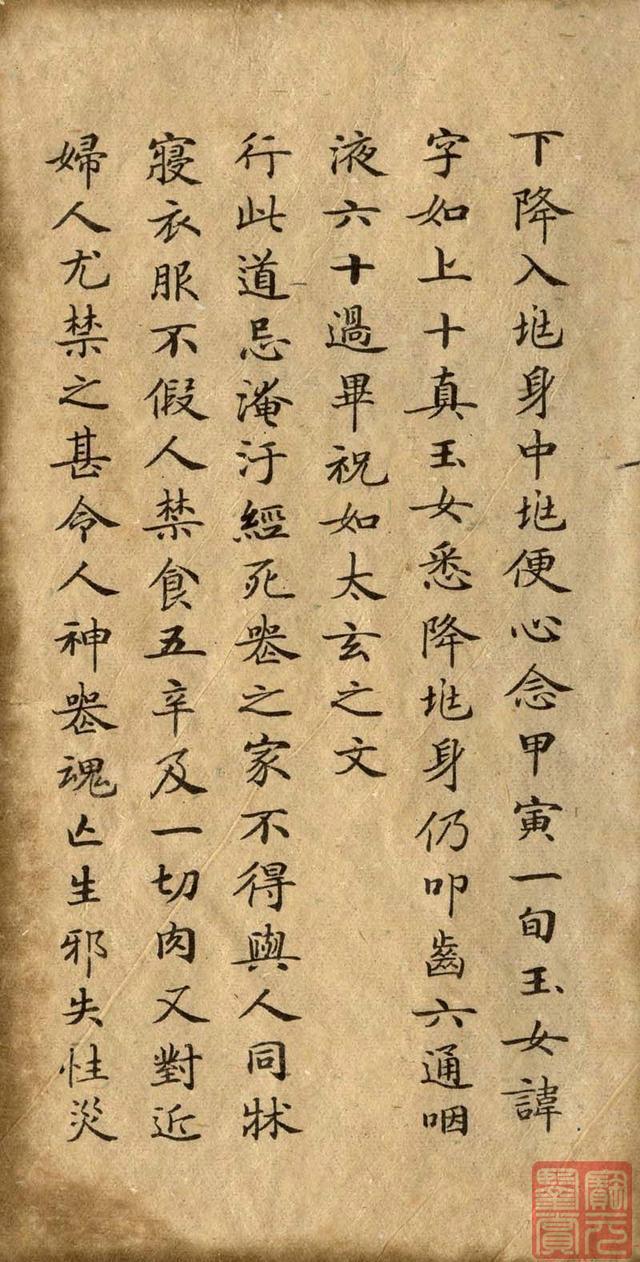 下降入兆身中兆便心念甲寅一旬玉女諱
字如上十真玉女悉降兆身仍叩齒六通咽
液六十過畢祝如太玄之文
行此道忌淹汙經死喪之家不得與人同牀
寢衣服不假人禁食五辛及一切肉又對近
婦人尤禁之甚令人神喪魂亡生邪失性災